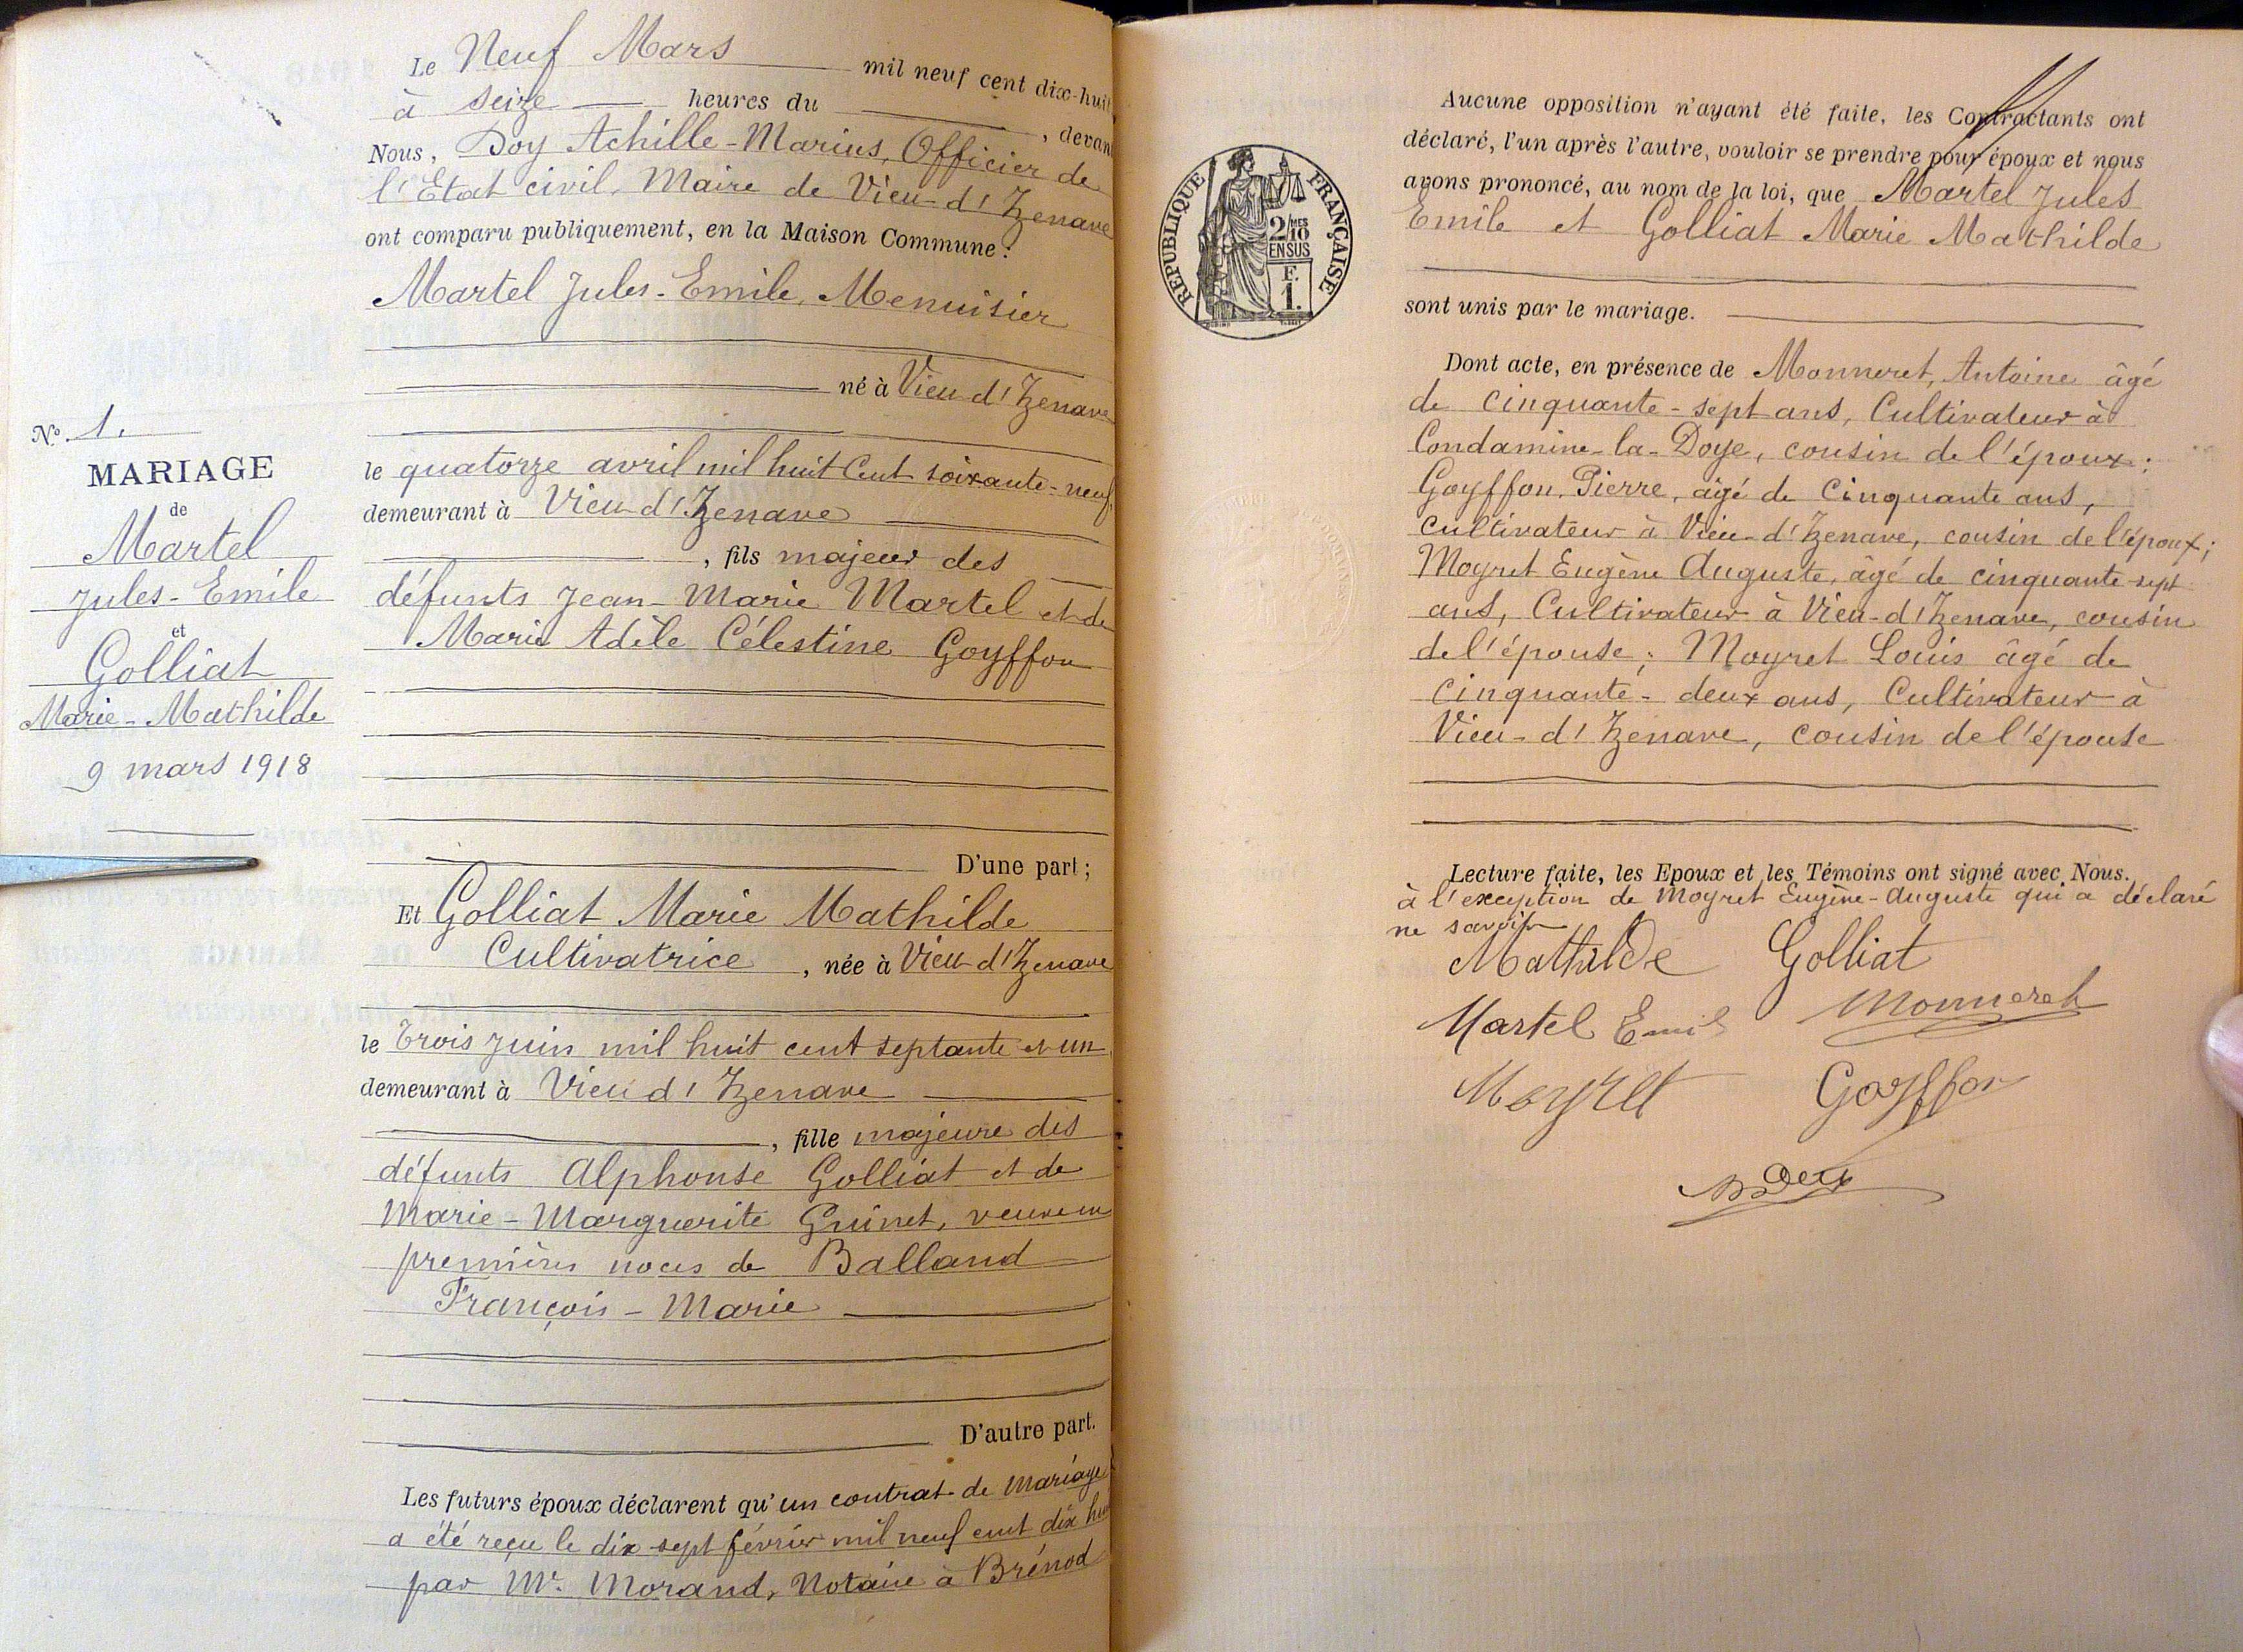 Le Neuf Mars mil neuf cent dix-huit
à seize heures du , devan
Nous, Doy Achille-Marius, Officier de
l'Etat civil, Maire de Vieu-d'Izenave
ont comparu publiquement, en la Maison Commune :
Martel Jules-Emile, Menuisier
né à Vieu d'Izenave
le quatorze avril mil huit Cent soixante-neuf,
demeurant à Vieu d'Izenave
, fils majeur des
défunts Jean-Marie Martel et de
Marie Adèle Célestine Goyffon
D'une part ;
Et Golliat Marie Mathilde
Cultivatrice , née à Vieu d'Izenave
le trois juin mil huit cent septante et un
demeurant à Vieu d'Izenave
, fille majeure des
défunts Alphonse Golliat et de
Marie-Marguerite Guinet, veuve en
premières noces de Balland
François-Marie
D'autre part.
Les futurs époux déclarent qu'un contrat de mariage
a été reçu le dix-sept février mil neuf cent dix hui
par Mr. Morand, Notaire à Brénod
No. 1.
MARIAGE
de
Martel
Jules-Emile
et
Golliat
Marie-Mathilde
9 mars 1918
REPUBLIQUE FRANÇAISE
2/10 MES
EN SUS
F.
1.
Aucune opposition n'ayant été faite, les Contractants ont
déclaré, l'un après l'autre, vouloir se prendre pour époux et nous
avons prononcé, au nom de la loi, que Martel Jules
Emile et Golliat Marie Mathilde
sont unis par le mariage.
Dont acte, en présence de Monneret, Antoine âgé
de cinquante-sept ans, Cultivateur à
Condamine-la-Doye, cousin de l'époux ;
Goyffon Pierre, âgé de Cinquante ans,
cultivateur à Vieu-d'Izenave, cousin de l'époux ;
Moyret Eugène Auguste, âgé de cinquante-sept
ans, Cultivateur à Vieu-d'Izenave, cousin
de l'épouse ; Moyret Louis âgé de
cinquante-deux ans, Cultivateur à
Vieu-d'Izenave, cousin de l'épouse
Lecture faite, les Epoux et les Témoins ont signé avec Nous.
à l'exception de Moyret Eugène-Auguste qui a déclaré
ne savoir
Mathilde Golliat
Martel Emile Monneret
Moyret Goyffon